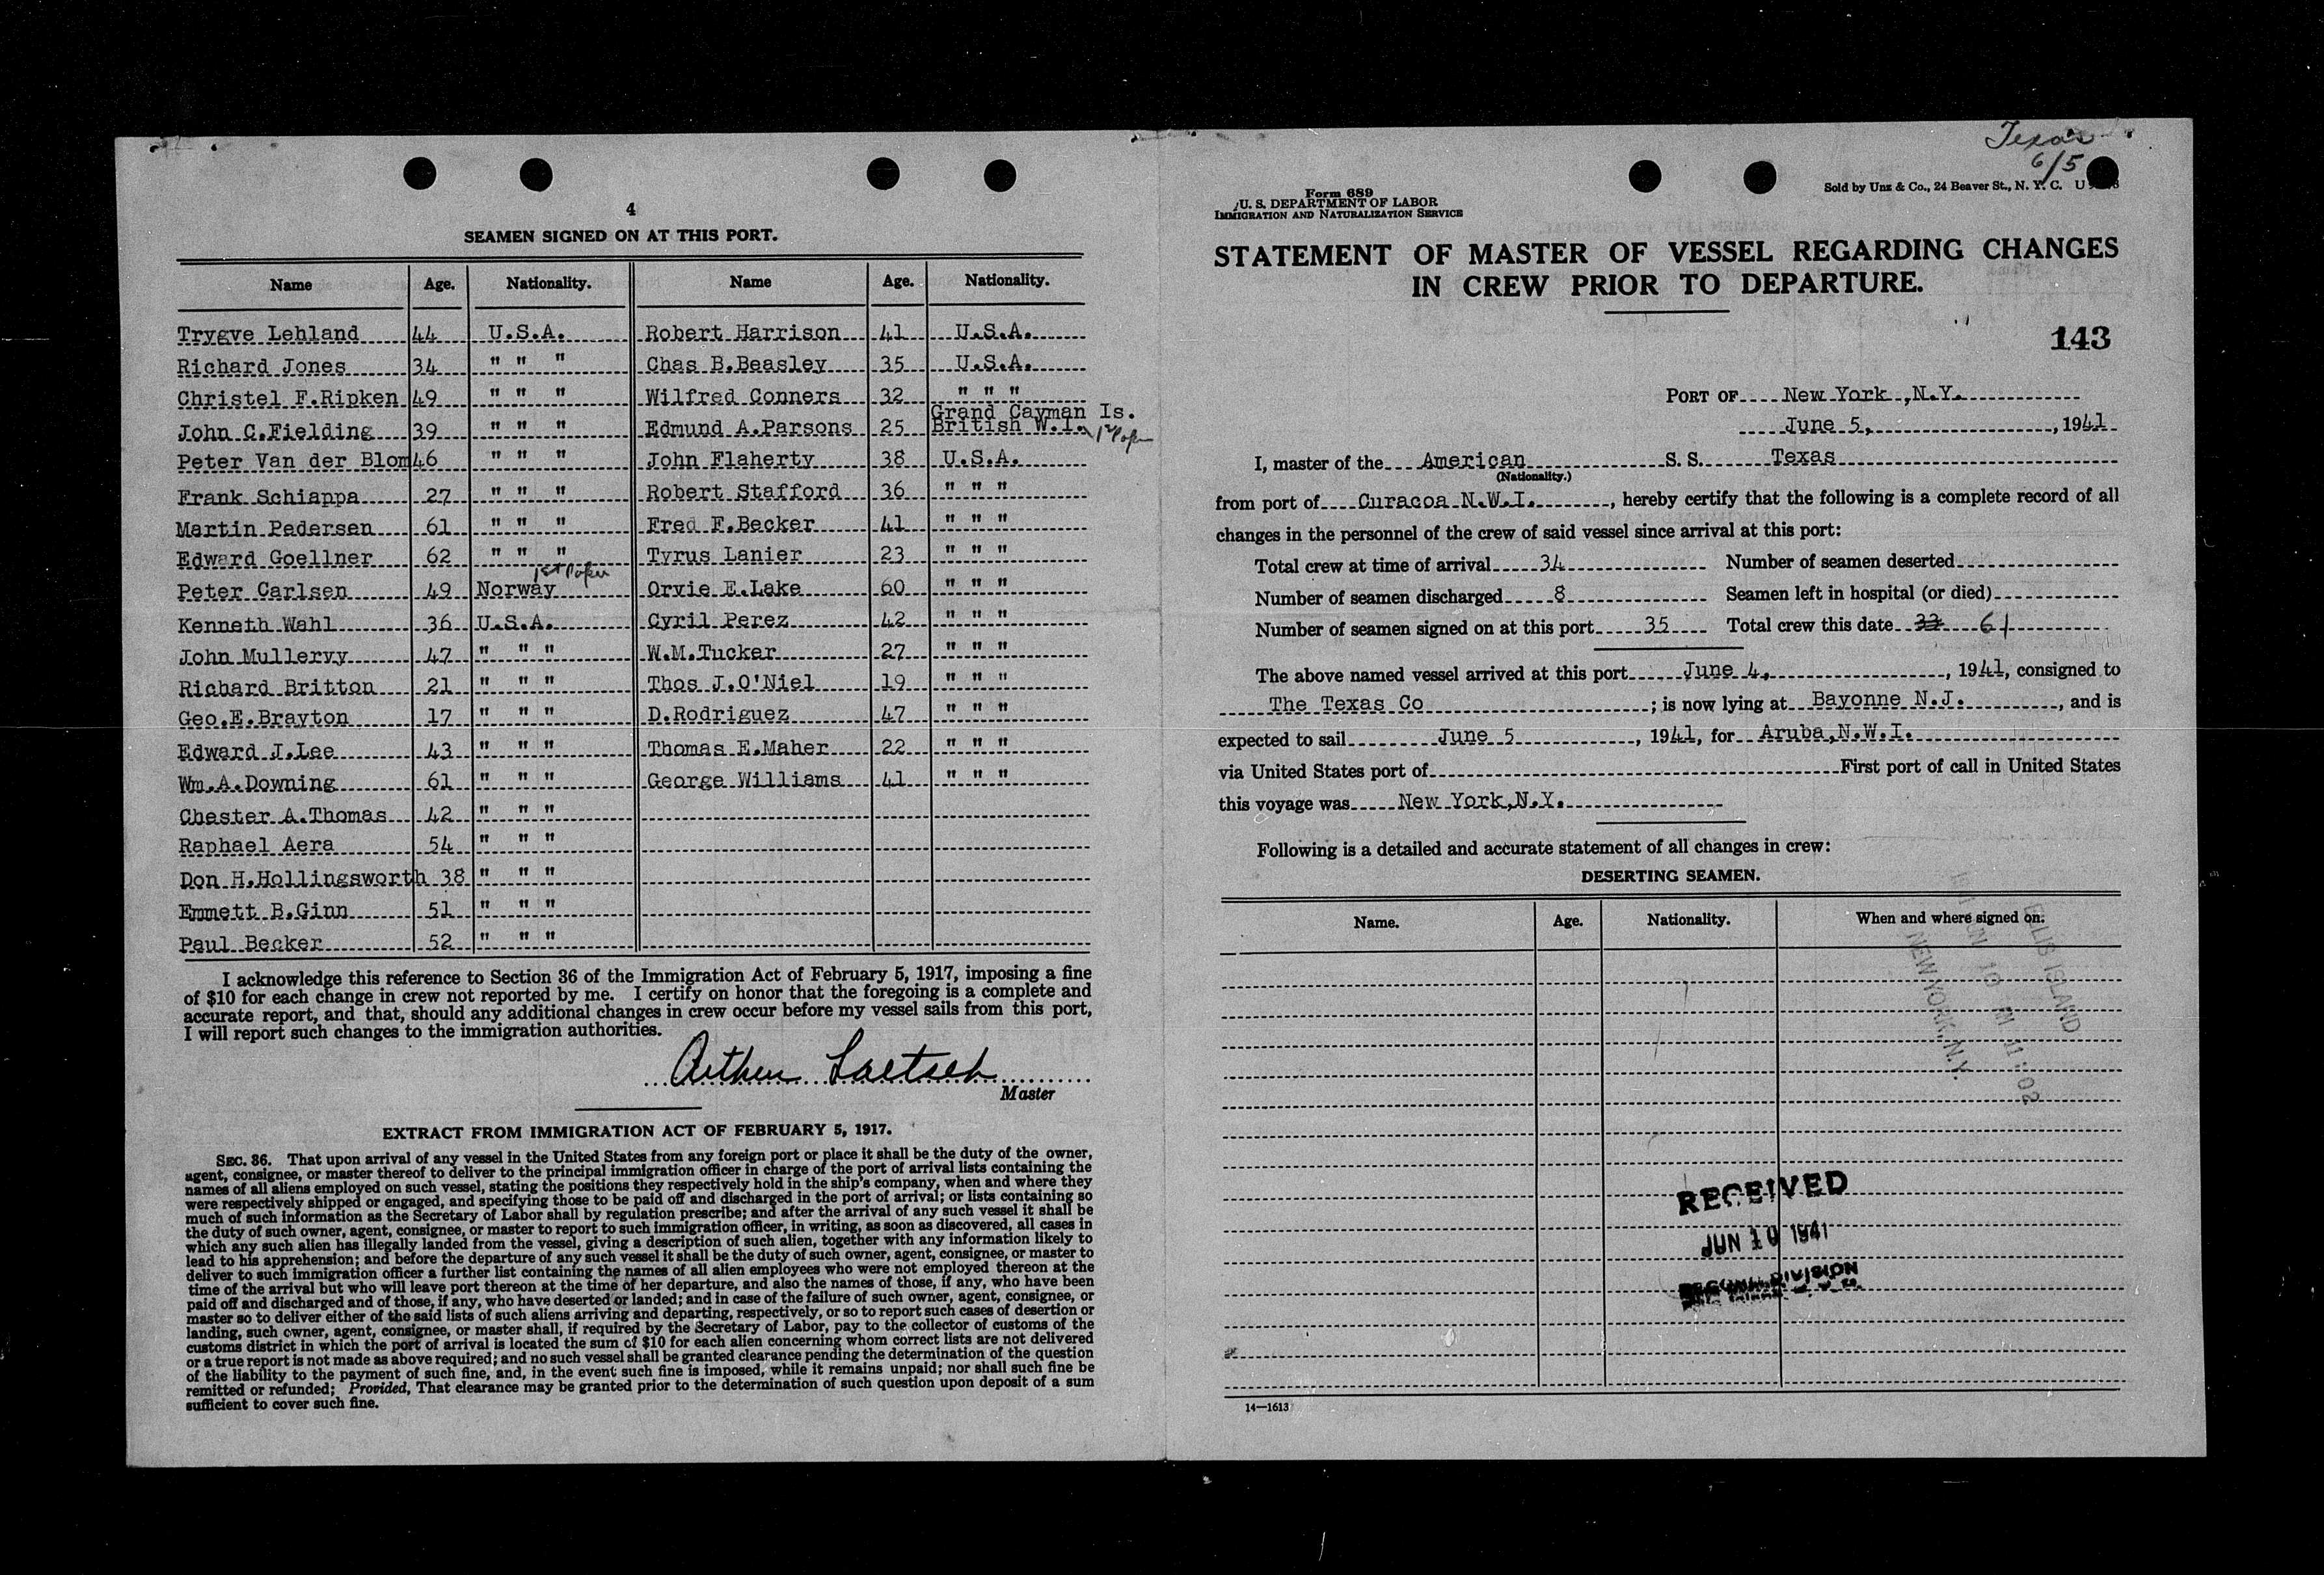 4
SEAMEN SIGNED ON AT THIS PORT.
Name Age. Nationality. Name Age. Nationality.
Trygve Lehland 44 U.S.A. Robert Harrison 41 U.S.A.
Richard Jones 34 " " " Chas B.Beasley 35 U.S.A.
Christel F.Ripken 49 " " " Wilfred Conners 32 " " "
John C.Fielding 39 " " " Edmund A.Parsons 25 Grand Cayman Is. British W.I.
Peter Van der Blom 46 " " " John Flaherty 38 U.S.A.
Frank Schiappa 27 " " " Robert Stafford 36 " " "
Martin Pedersen 61 " " " Fred F.Becker 41 " " "
Edward Goellner 62 " " " Tyrus Lanier 23 " " "
Peter Carlsen 49 Norway 1st Paper Orvie E.Lake 60 " " "
Kenneth Wahl 36 U.S.A. Cyril Perez 42 " " "
John Mullervy 47 " " " W.M.Tucker 27 " " "
Richard Britton 21 " " " Thos J.O'Niel 19 " " "
Geo.E.Brayton 17 " " " D.Rodriguez 47 " " "
Edward J.Lee 43 " " " Thomas E.Maher 22 " " "
Wm.A.Downing 61 " " " George Williams 41 " " "
Chester A.Thomas 42 " " "
Raphael Aera 54 " " "
Don H.Hollingsworth 38 " " "
Emmett B.Ginn 51 " " "
Paul Becker 52 " " "
I acknowledge this reference to Section 36 of the Immigration Act of February 5, 1917, imposing a fine
of $10 for each change in crew not reported by me. I certify on honor that the foregoing is a complete and
accurate report, and that, should any additional changes in crew occur before my vessel sails from this port,
I will report such changes to the immigration authorities.
Arthur Laetsch
Master
EXTRACT FROM IMMIGRATION ACT OF FEBRUARY 5, 1917.
SEC. 36. That upon arrival of any vessel in the United States from any foreign port or place it shall be the duty of the owner,
agent, consignee, or master thereof to deliver to the principal immigration officer in charge of the port of arrival lists containing the
names of all aliens employed on such vessel, stating the positions they respectively hold in the ship's company, when and where they
were respectively shipped or engaged, and specifying those to be paid off and discharged in the port of arrival; or lists containing so
much of such information as the Secretary of Labor shall by regulation prescribe; and after the arrival of any such vessel it shall be
the duty of such owner, agent, consignee, or master to report to such immigration officer, in writing, as soon as discovered, all cases in
which any such alien has illegally landed from the vessel, giving a description of such alien, together with any information likely to
lead to his apprehension; and before the departure of any such vessel it shall be the duty of such owner, agent, consignee, or master to
deliver to such immigration officer a further list containing the names of all alien employees who were not employed thereon at the
time of the arrival but who will leave port thereon at the time of her departure, and also the names of those, if any, who have been
paid off and discharged and of those, if any, who have deserted or landed; and in case of the failure of such owner, agent, consignee, or
master so to deliver either of the said lists of such aliens arriving and departing, respectively, or so to report such cases of desertion or
landing, such owner, agent, consignee, or master shall, if required by the Secretary of Labor, pay to the collector of customs of the
customs district in which the port of arrival is located the sum of $10 for each alien concerning whom correct lists are not delivered
or a true report is not made as above required; and no such vessel shall be granted clearance pending the determination of the question
of the liability to the payment of such fine, and, in the event such fine is imposed, while it remains unpaid; nor shall such fine be
remitted or refunded; Provided, That clearance may be granted prior to the determination of such question upon deposit of a sum
sufficient to cover such fine.
Texas
6/5
Form 689
U. S. DEPARTMENT OF LABOR
IMMIGRATION AND NATURALIZATION SERVICE
Sold by Unz & Co., 24 Beaver St., N. Y. C.
STATEMENT OF MASTER OF VESSEL REGARDING CHANGES
IN CREW PRIOR TO DEPARTURE.
143
PORT OF New York ,N.Y.
June 5, , 1941
I, master of the American S. S. Texas
(Nationality.)
from port of Curacoa N.W.I. , hereby certify that the following is a complete record of all
changes in the personnel of the crew of said vessel since arrival at this port:
Total crew at time of arrival 34 Number of seamen deserted
Number of seamen discharged 8 Seamen left in hospital (or died)
Number of seamen signed on at this port 35 Total crew this date 33 61
The above named vessel arrived at this port June 4, , 1941, consigned to
The Texas Co ; is now lying at Bayonne N.J. , and is
expected to sail June 5 , 1941, for Aruba,N.W.I.
via United States port of First port of call in United States
this voyage was New York,N.Y.
Following is a detailed and accurate statement of all changes in crew:
DESERTING SEAMEN.
Name. Age. Nationality. When and where signed on.
ELLIS ISLAND
JUN 10 11:02
NEW YORK, N.Y.
RECEIVED
JUN 10 1941
DIVISION
14—1613